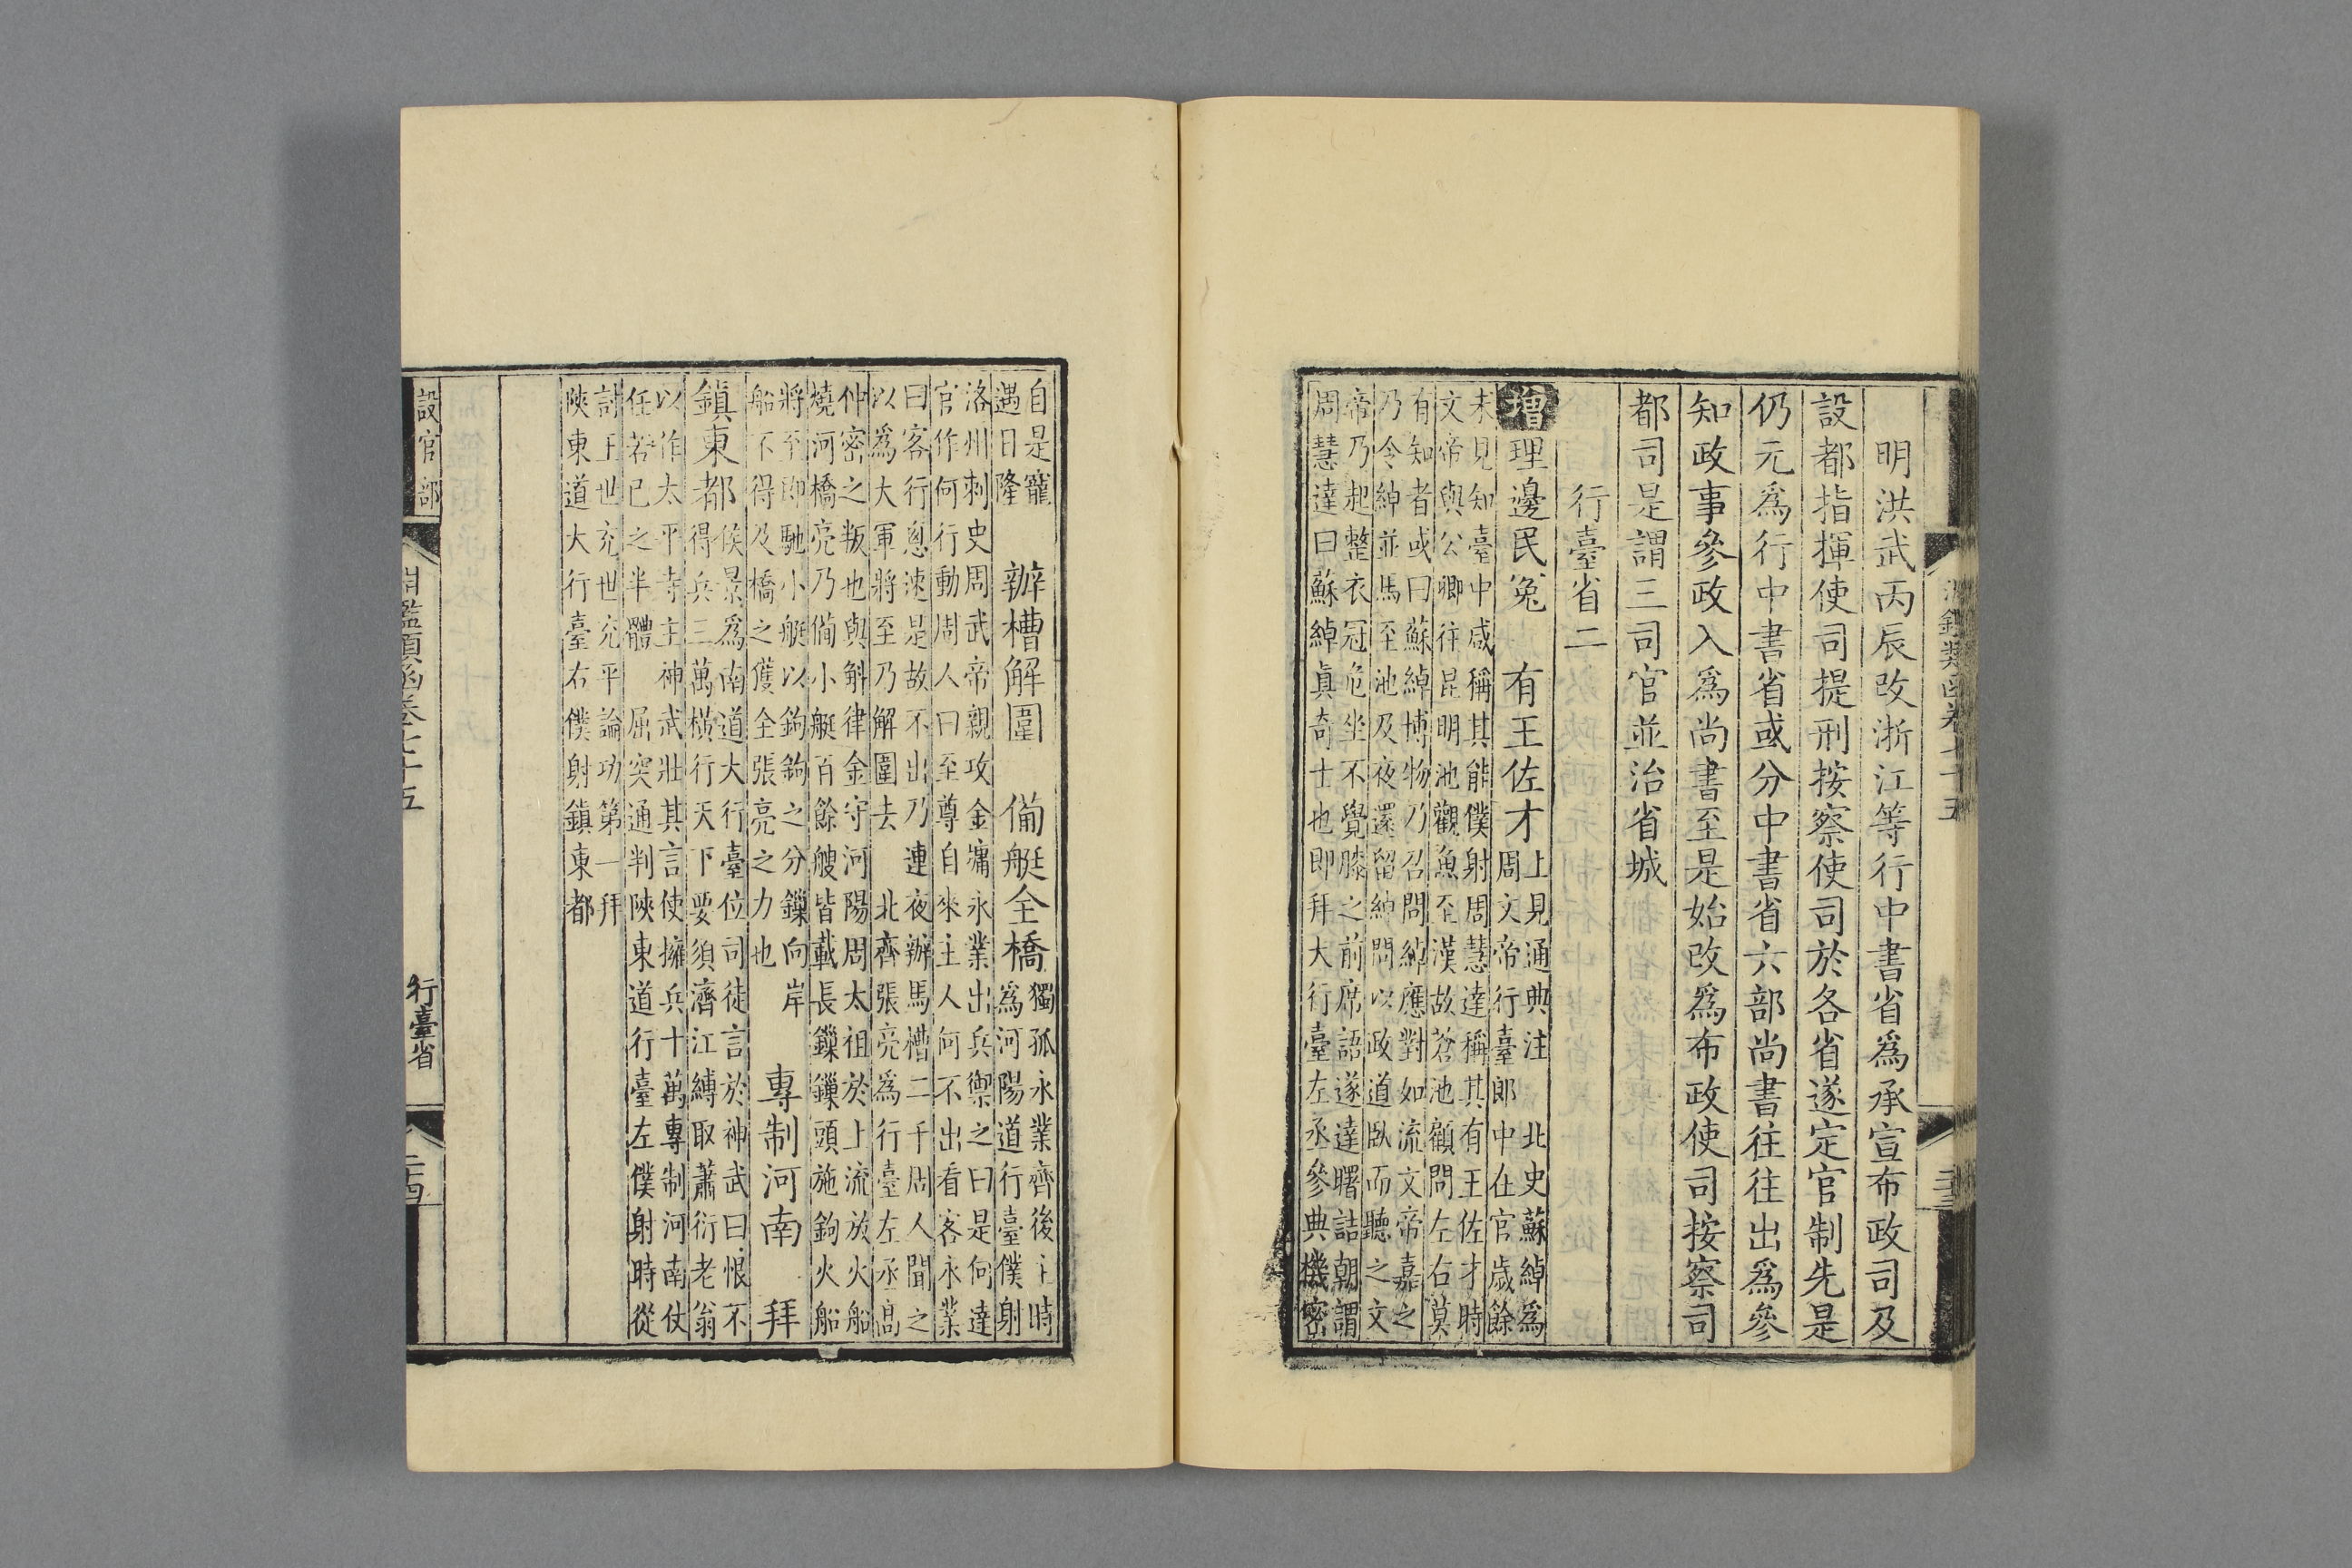 明洪武丙辰改浙江等行中書省爲承宣布政司及
設都指揮使司提刑按察使司於各省遂定官制先是
仍元爲行中書省或分中書省六部尚書往往出爲參
知政事參政入爲尚書至是始改爲布政使司按察司
都司是謂三司官並治省城
行臺省二
增理邊民寃 有王佐才 上見通典注 北史蘇綽爲
周文帝行臺郎中在官歲餘
未見知臺中咸稱其能僕射周慧達稱其有王佐才時
文帝與公卿往昆明池觀魚至漢故蒼池顧問左右莫
有知者或曰蘇綽博物乃召問綽應對如流文帝嘉之
乃令綽並馬至池及夜還留綽問以政道臥而聽之文
帝乃起整衣冠危坐不覺膝之前席語遂達曙詰朝謂
周慧達曰蘇綽眞奇士也即拜大行臺左丞參典機密
自是寵
遇日隆
辦槽解圍 備艇全橋 獨孤永業齊後主時
爲河陽道行臺僕射
洛州刺史周武帝親攻金墉永業出兵禦之曰是何達
官作何行動周人曰至尊自來主人何不出看客永業
曰客行怱速是故不出乃連夜辦馬槽二千周人聞之
以爲大軍將至乃解圍去 北齊張亮爲行臺左丞高
仲密之叛也與斛律金守河陽周太祖於上流放火船
燒河橋亮乃備小艇百餘艘皆載長鏁鏁頭施鉤火船
將至即馳小艇以鉤鉤之分鏁向岸
船不得及橋之獲全張亮之力也
專制河南 拜
鎮東都 侯景爲南道大行臺位司徒言於神武曰恨不
得兵三萬橫行天下要須濟江縛取蕭衍老翁
以作太平寺主神武壯其言使擁兵十萬專制河南仗
任若己之半體 屈突通判陝東道行臺左僕射時從
討王世充世充平論功第一拜
陝東道大行臺右僕射鎮東都
設官部
淵鑑類函卷七十五
行臺省
二十四